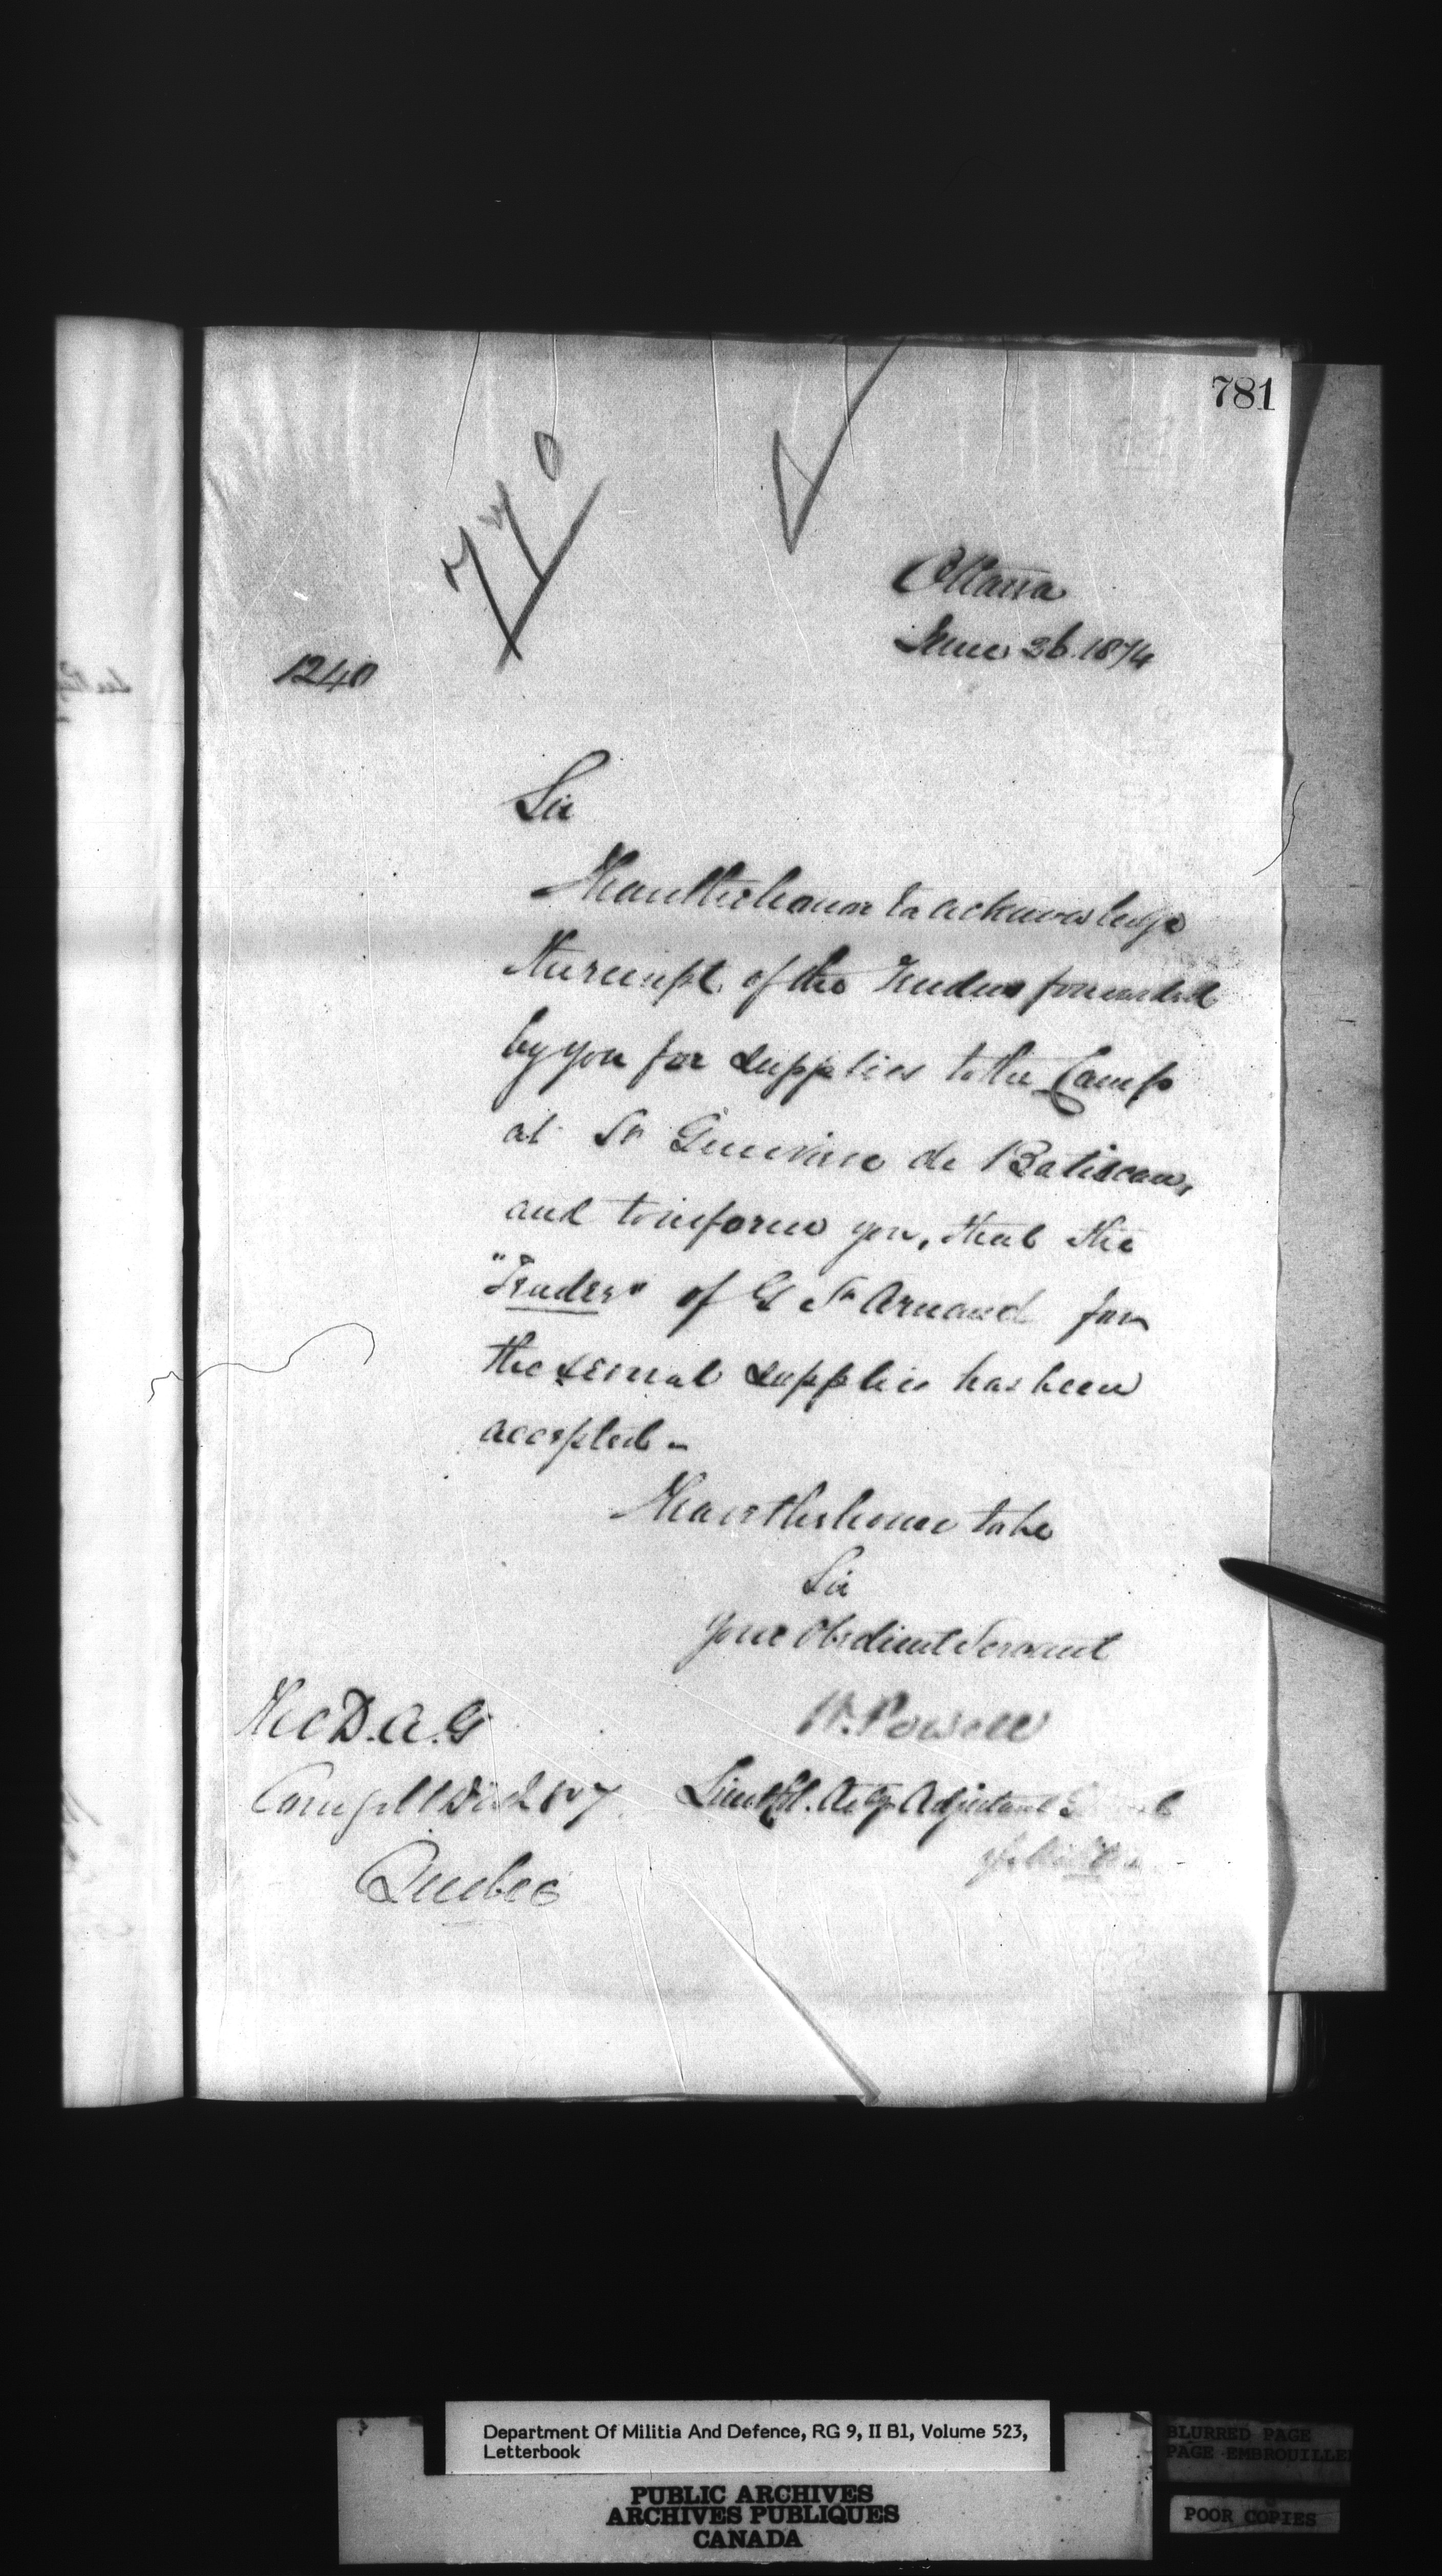 781
Ottawa
June 26. 1874
1240
Sir
I have the honor to acknowledge
the receipt of the Tenders forwarded
by you for supplies to the Camp
at St Genevieve de Batiscan,
and to inform you, that the
"Tender" of St Arnaud for
the several supplies has been
accepted -
I have the honor to be
Sir
Your Obedient Servant
W. Powell
Lieut Col. Actg Adjutant General
of Militia
The D. A. G
Comg M Dist No 7
Quebec
Department Of Militia And Defence, RG 9, II B1, Volume 523,
Letterbook
PUBLIC ARCHIVES
ARCHIVES PUBLIQUES
CANADA
BLURRED PAGE
PAGE EMBROUILLE
POOR COPIES